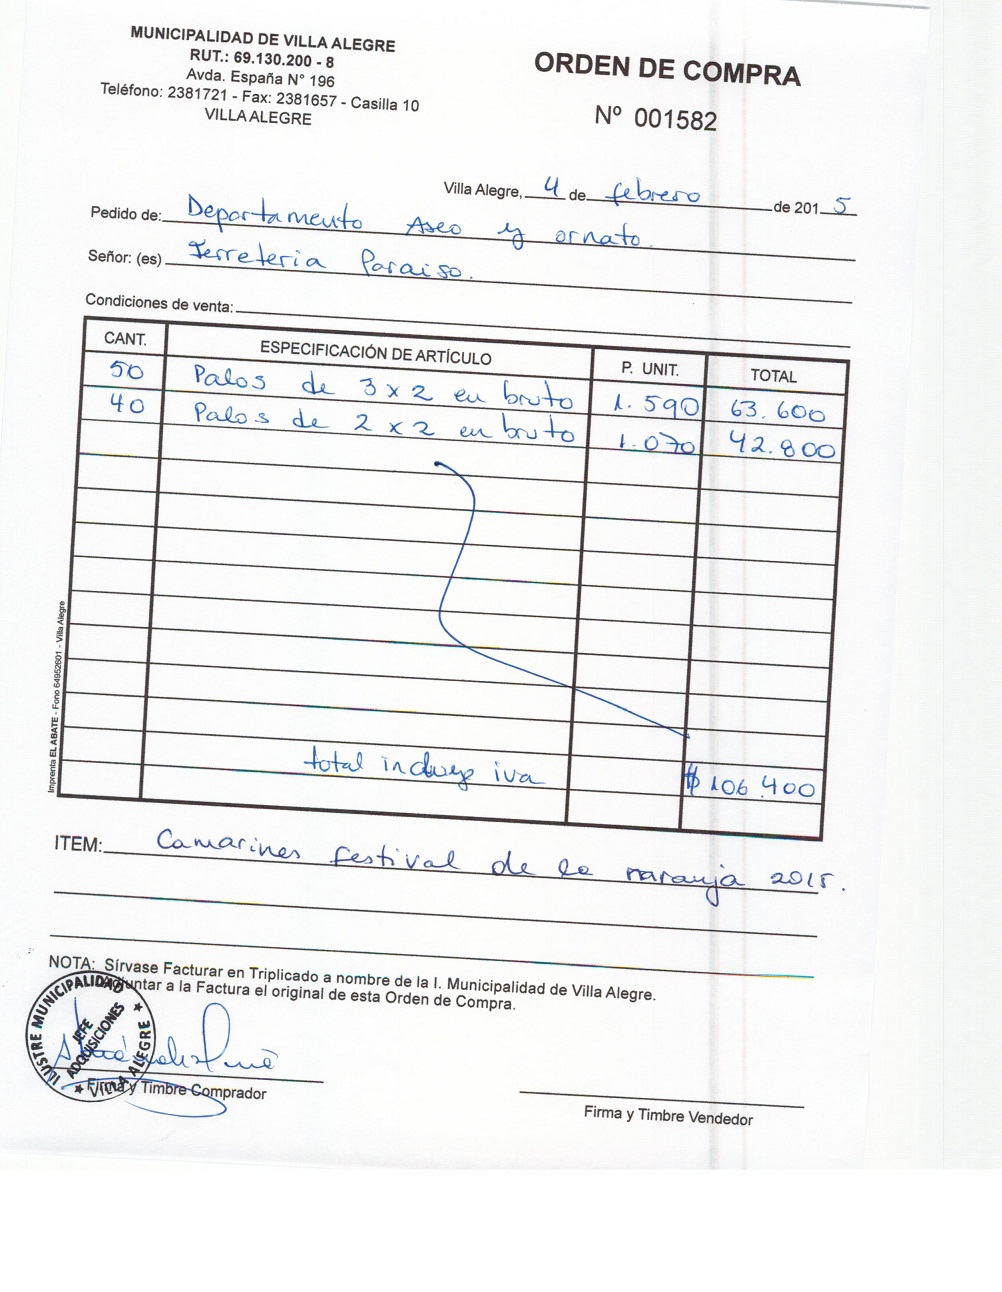 MUNICIPALIDAD DE VILLA ALEGRE
RUT.: 69.130.200 - 8
Avda. España N° 196
Teléfono: 2381721 - Fax: 2381657 - Casilla 10
VILLA ALEGRE
ORDEN DE COMPRA
Nº 001582
Villa Alegre, 4 de febrero de 2015
Pedido de: Departamento Aseo y ornato.
Señor: (es) Ferreteria Paraiso.
Condiciones de venta:
CANT. ESPECIFICACIÓN DE ARTÍCULO P. UNIT. TOTAL
50 Palos de 3 x 2 en bruto 1.590 63.600
40 Palos de 2 x 2 en bruto 1.070 42.800
total incluye iva $ 106.400
Imprenta EL ABATE - Fono 64952601 - Villa Alegre
ITEM: Camarines festival de la naranja 2015.
NOTA: Sírvase Facturar en Triplicado a nombre de la I. Municipalidad de Villa Alegre.
Adjuntar a la Factura el original de esta Orden de Compra.
ILUSTRE MUNICIPALIDAD
JEFE
ADQUISICIONES
★ VILLA ALEGRE ★
Firma y Timbre Comprador
Firma y Timbre Vendedor